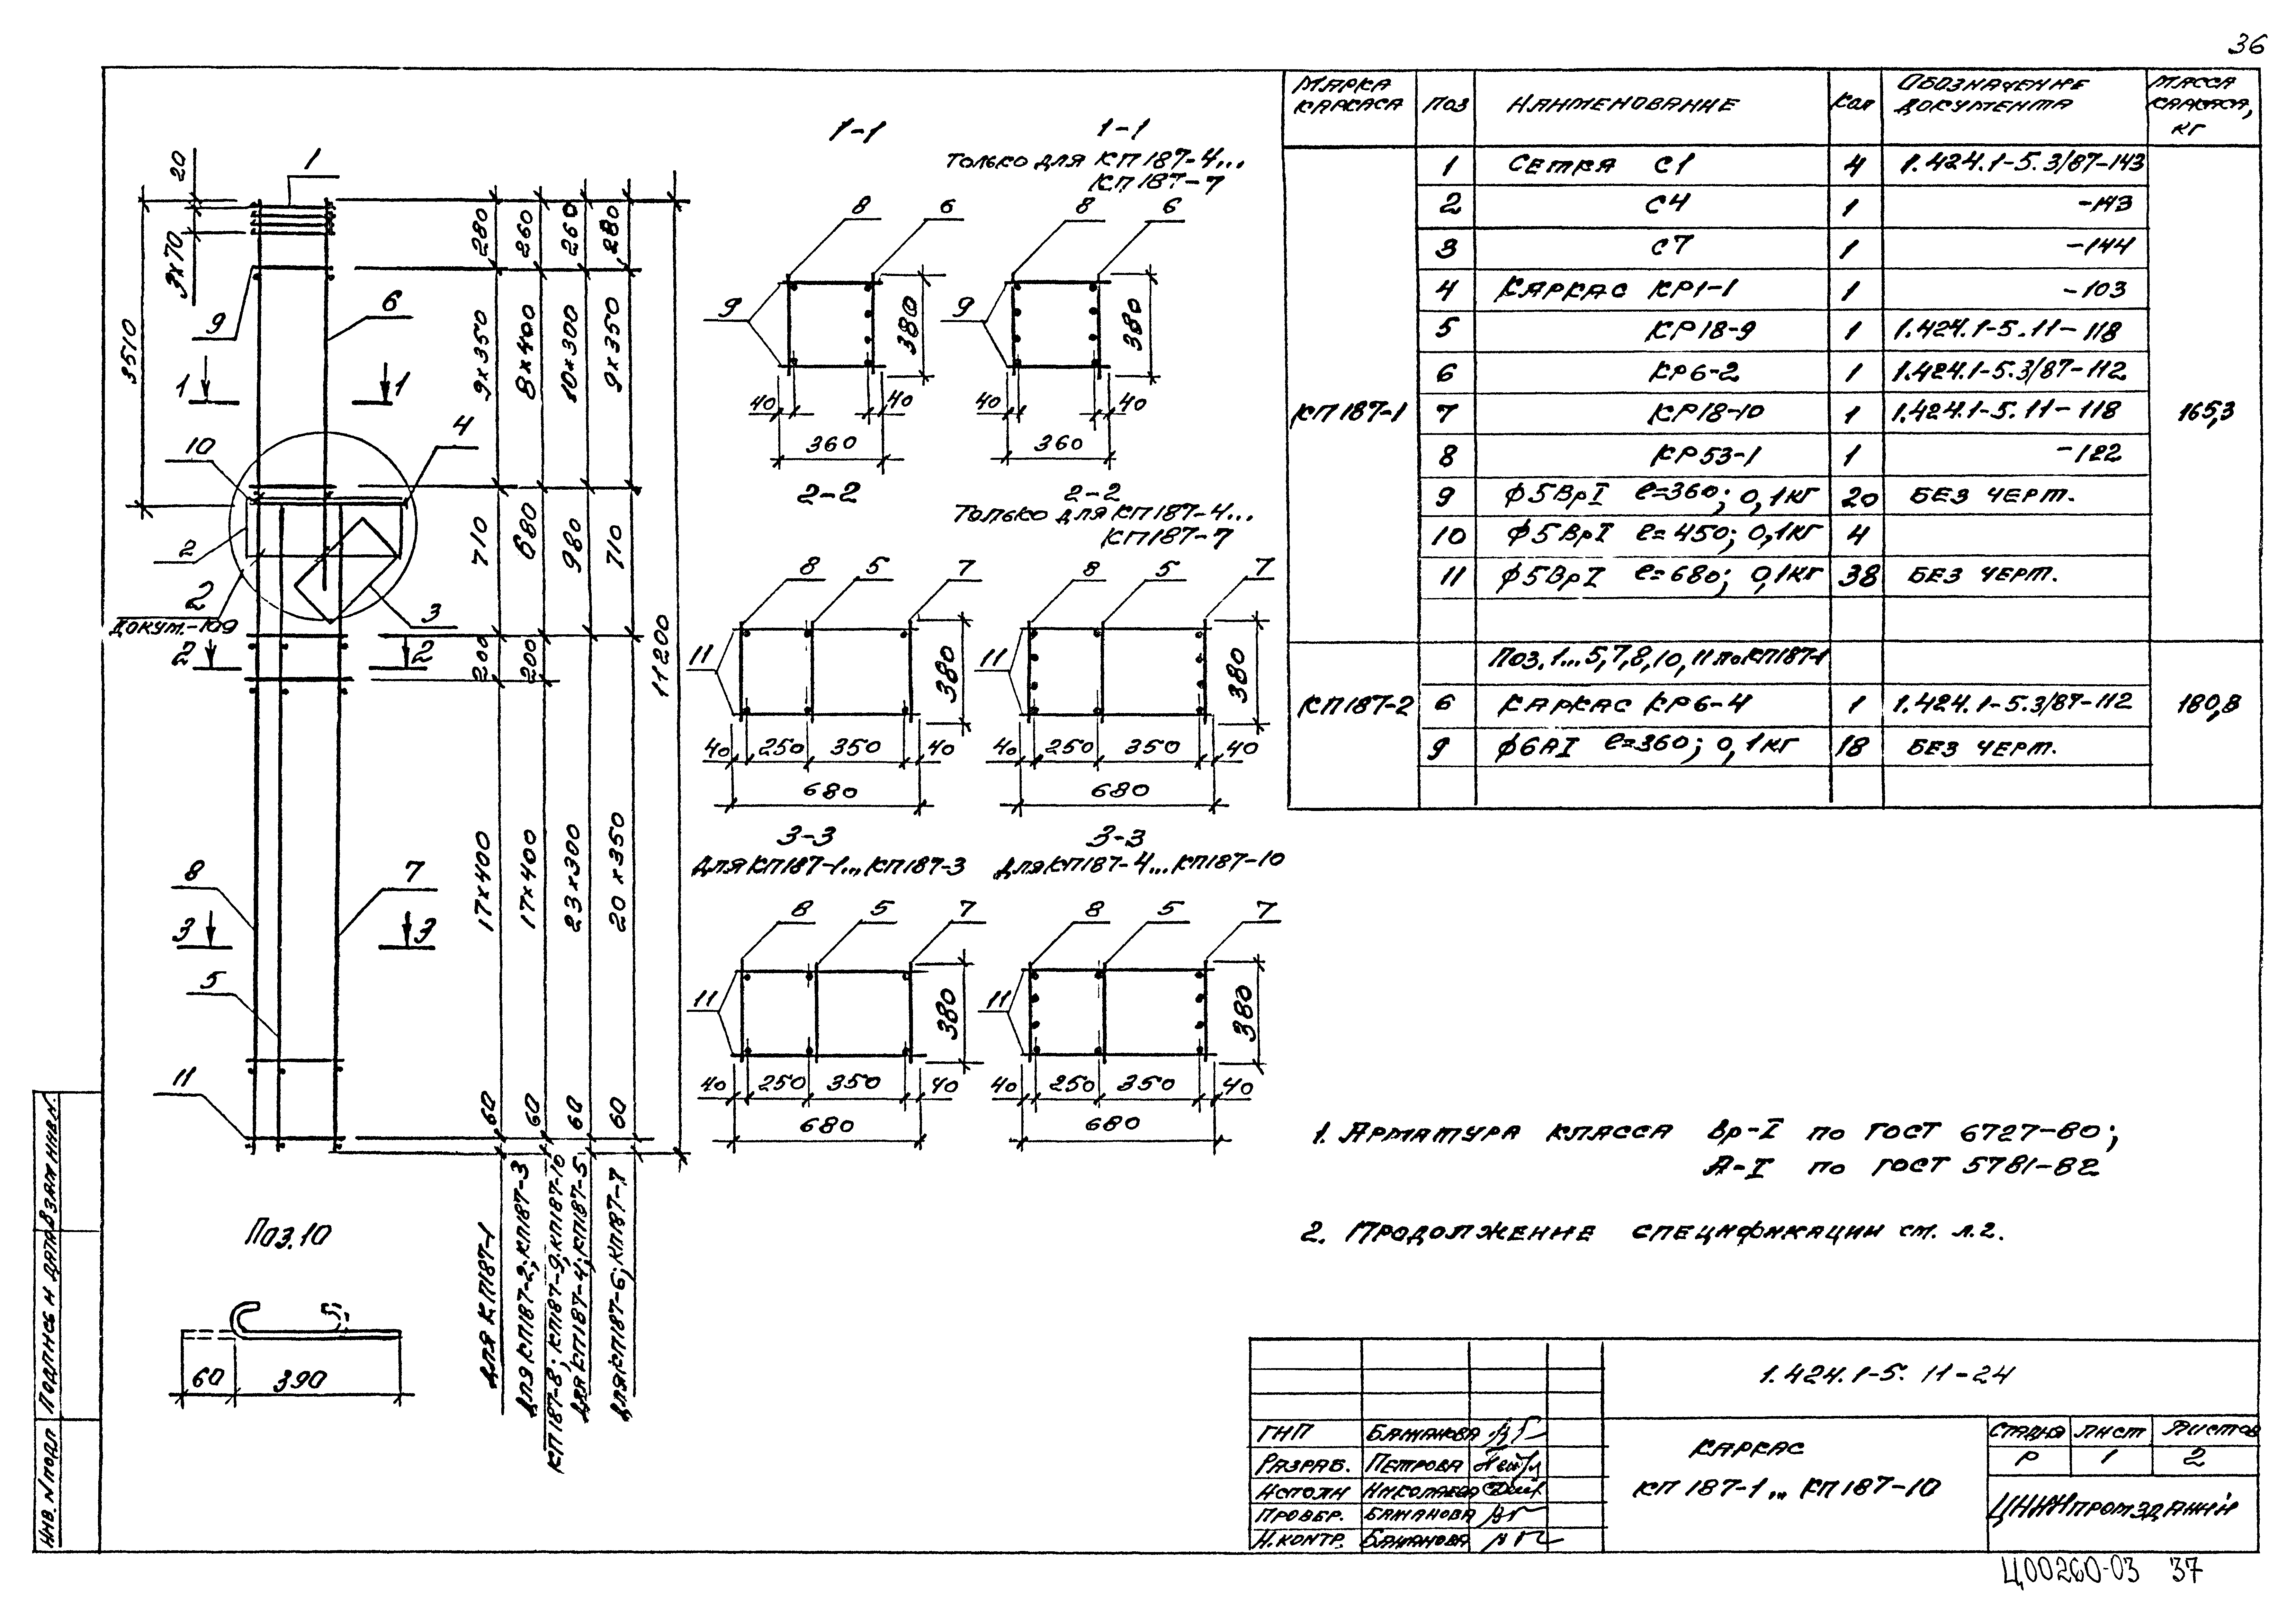 36
МАРКА КАРКАСА ПОЗ НАИМЕНОВАНИЕ КОЛ ОБОЗНАЧЕНИЕ ДОКУМЕНТА МАССА КАРКАСА, КГ
КП187-1 165,3
1 СЕТКА С1 4 1.424.1-5.3/87-143
2 С4 1 -143
3 С7 1 -144
4 КАРКАС КР1-1 1 -103
5 КР18-9 1 1.424.1-5.11-118
6 КР6-2 1 1.424.1-5.3/87-112
7 КР18-10 1 1.424.1-5.11-118
8 КР53-1 1 -122
9 ϕ5ВрI ℓ=360; 0,1КГ 20 БЕЗ ЧЕРТ.
10 ϕ5ВрI ℓ=450; 0,1КГ 4
11 ϕ5ВрI ℓ=680; 0,1КГ 38 БЕЗ ЧЕРТ.
КП187-2 180,8
ПОЗ. 1...5,7,8,10,11 по КП187-1
6 КАРКАС КР6-4 1 1.424.1-5.3/87-112
9 ϕ6АI ℓ=360; 0,1КГ 18 БЕЗ ЧЕРТ.
20
3х70
3510
1
9
6
1 1
10
4
2
2
ДОКУМ.-109
3
2 2
8
7
3 3
5
11
280 260 260 280
9х350 8х400 10х300 9х350
710 680 980 710
200 200
17х400 17х400 23х300 20х350
60 60 60 60
11200
ДЛЯ КП187-1
ДЛЯ КП187-2; КП187-3
КП187-8; КП187-9; КП187-10
ДЛЯ КП187-4; КП187-5
ДЛЯ КП187-6; КП187-7
1-1
8 6
9
380
40 40
360
1-1
ТОЛЬКО ДЛЯ КП187-4...
КП187-7
8 6
9
380
40 40
360
2-2
8 5 7
11
380
40 250 350 40
680
2-2
ТОЛЬКО ДЛЯ КП187-4...
КП187-7
8 5 7
11
380
40 250 350 40
680
3-3
ДЛЯ КП187-1... КП187-3
8 5 7
11
380
40 250 350 40
680
3-3
ДЛЯ КП187-4... КП187-10
8 5 7
11
380
40 250 350 40
680
ПОЗ.10
60 390
1. АРМАТУРА КЛАССА Вр-I по ГОСТ 6727-80;
А-I по ГОСТ 5781-82
2. ПРОДОЛЖЕНИЕ СПЕЦИФИКАЦИИ СМ. Л.2.
1.424.1-5. 11-24
ГИП БАЖАНОВА
РАЗРАБ. ПЕТРОВА
ИСПОЛН НИКОЛАЕВА
ПРОВЕР. БАЖАНОВА
Н.КОНТР. БАЖАНОВА
КАРКАС
КП 187-1... КП187-10
СТАДИЯ ЛИСТ ЛИСТОВ
Р 1 2
ЦНИИПРОМЗДАНИЙ
ИНВ. N ПОДЛ ПОДПИСЬ И ДАТА ВЗАМ ИНВ.N.
Ц00260-03 37